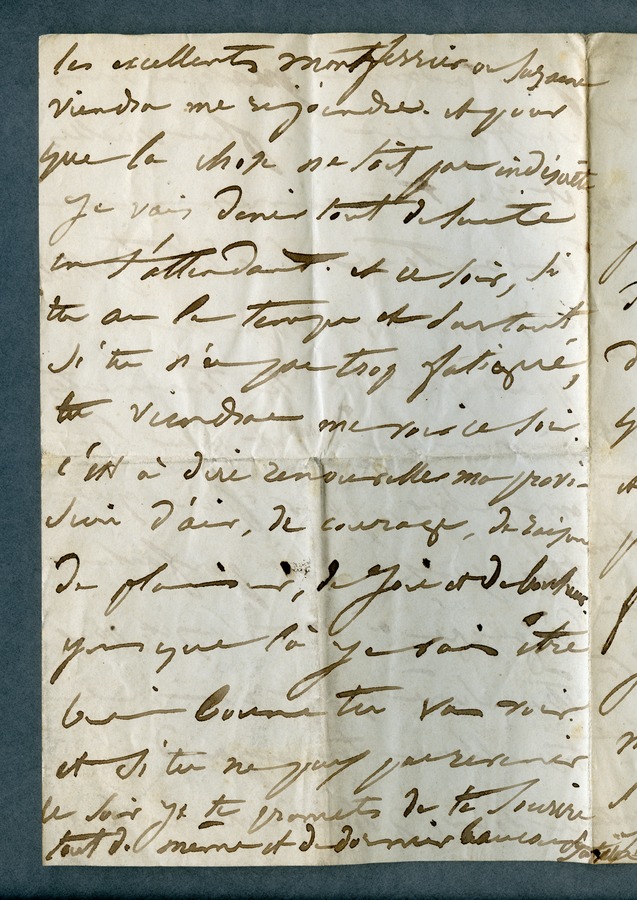 les excellents montferrier ou Suzanne
viendra me rejoindre. et pour
que la chose ne soit pas indiscrète
Je vais diner tout de suite
en t'attendant. et ce soir, si
tu as le temps et surtout
si tu n'es pas trop fatigué,
tu viendras me voir ce soir.
c'est à dire renouveller ma provi-
sion d'air, de courage, de raison
de plaisir, de joie et de bonheur.
que là je vais être
bien bonne tu vas voir.
et si tu ne peux pas revenir
ce soir je te promets de te sourire
tout de même et de dormir beaucoup